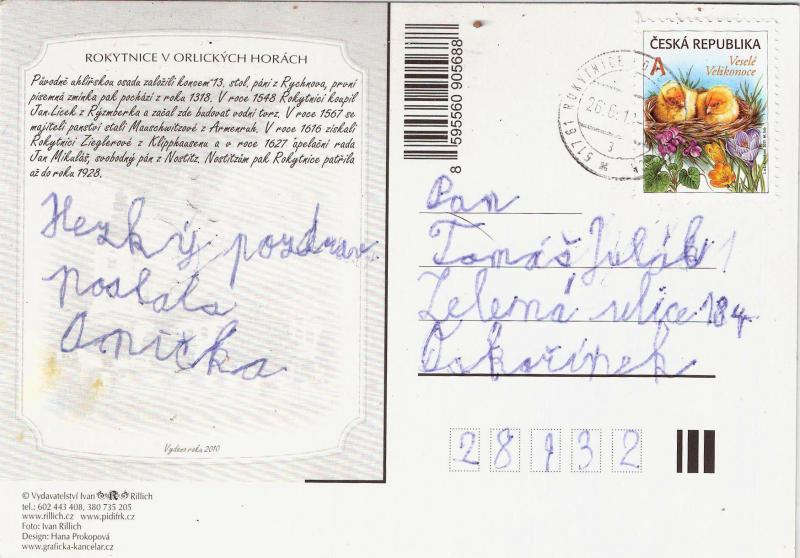 ROKYTNICE V ORLICKÝCH HORÁCH
Původně uhlířskou osadu založili koncem 13. stol. páni z Rychnova, první
písemná zmínka pak pochází z roku 1318. V roce 1548 Rokytnici koupil
Jan Licek z Rýzmberka a začal zde budovat vodní tvrz. V roce 1567 se
majiteli panství stali Mauschwitzové z Armenruh. V roce 1616 získali
Rokytnici Zieglerové z Klipphausenu a v roce 1627 apelační rada
Jan Mikuláš, svobodný pán z Nostitz. Nostitzům pak Rokytnice patřila
až do roku 1928.
Hezký pozdrav
poslala
Anička
Vydáno roku 2010
© Vydavatelství Ivan R Rillich
tel.: 602 443 408, 380 735 205
www.rillich.cz www.pidifrk.cz
Foto: Ivan Rillich
Design: Hana Prokopová
www.graficka-kancelar.cz
8 595560 905688
51761 ROKYTNICE
ČESKÁ REPUBLIKA
A
Veselé
Velikonoce
Pan
Tomáš Julák
Zelená ulice 184
28932